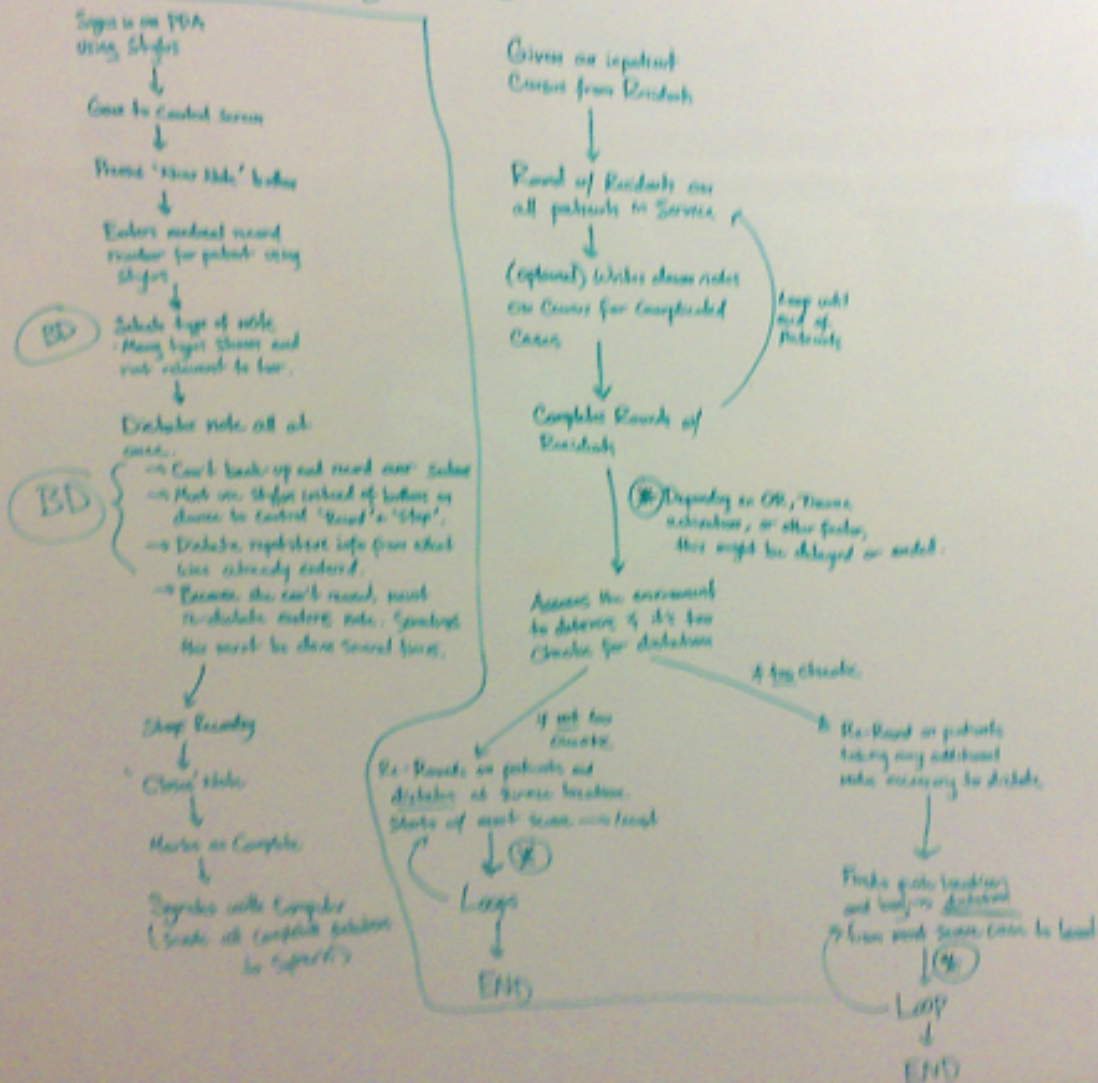 Signs in on PDA
using Stylus
Goes to Control Screen
Presses "New Note" button
Enters medical record
number for patient using
Stylus
BD
Selects type of note
- Many types shown and
not relevant to her.
Dictates note all at
once.
BD
→ Can't back-up and record over
→ Must use Stylus instead of buttons on
device to control "Record" & "Stop".
→ Dictate repetitive info from what
was already entered.
→ Because she can't record, must
re-dictate entire note. Sometimes
this must be done several times.
Stop Recording
"Close" Note
Marks as Complete
with Computer
(Sends all complete dictations
to
Given an inpatient
Census from Residents
Round w/ Residents on
all patients on Service
(optional) Writes down notes
on Census for Complicated
Cases
Loop until
end of
Patients
Completes Rounds w/
Residents
Depending on OR, Trauma
activation, or other factor,
this might be delayed or ended.
Assesses the environment
to determine if it's too
Chaotic for dictation
if not too
chaotic
if too chaotic
Re-Rounds on patients and
dictates at Service location.
Starts w/ most severe → least
Loops
END
Re-Round on patients
taking any additional
notes necessary to dictate
Finds quiet location
and begins dictation
from most severe case to least
Loop
END